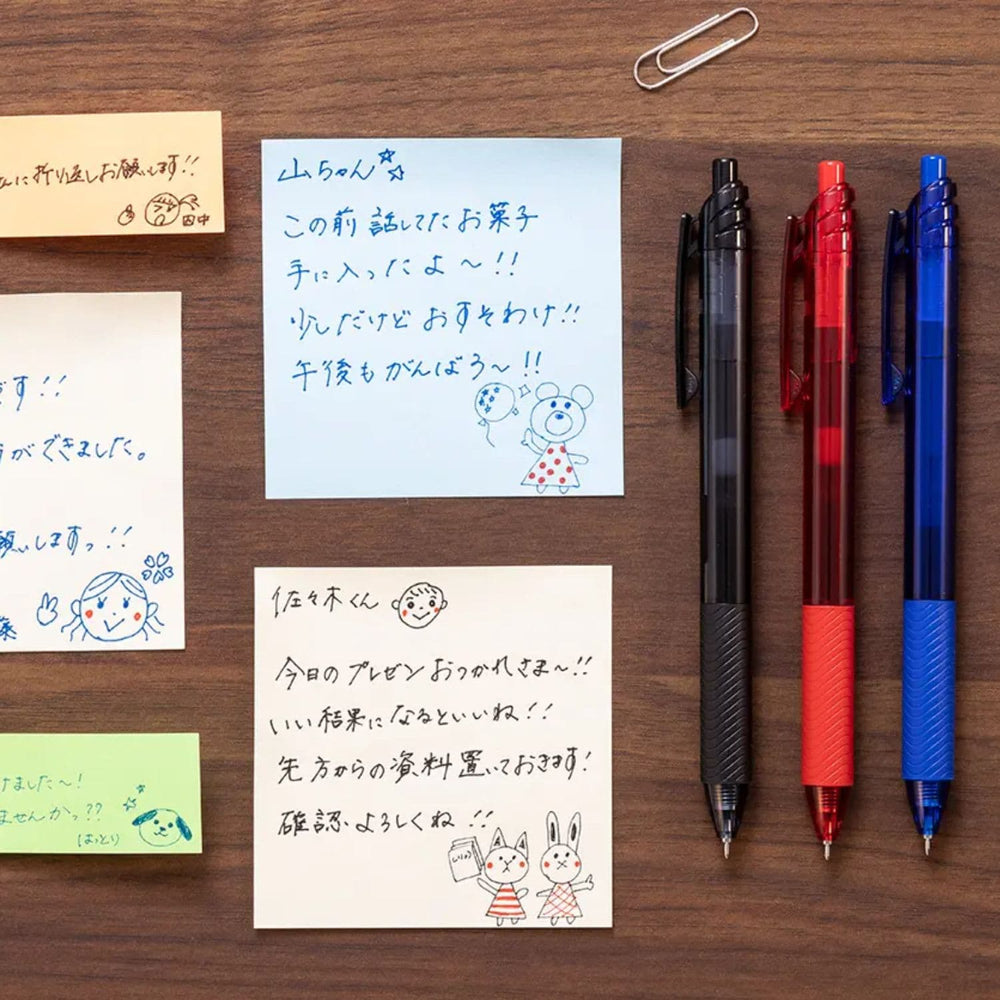 に折り返しお願いします!!
田中
です!!
ができました。
願いしますっ!!
けました～!
ませんかっ??
はっとり
山ちゃん
この前話してたお菓子
手に入ったよ～!!
少しだけどおすそわけ!!
午後もがんばろ～!!
佐々木くん
今日のプレゼンおつかれさま～!!
いい結果になるといいね!!
先方からの資料置いておきます!
確認よろしくね!!